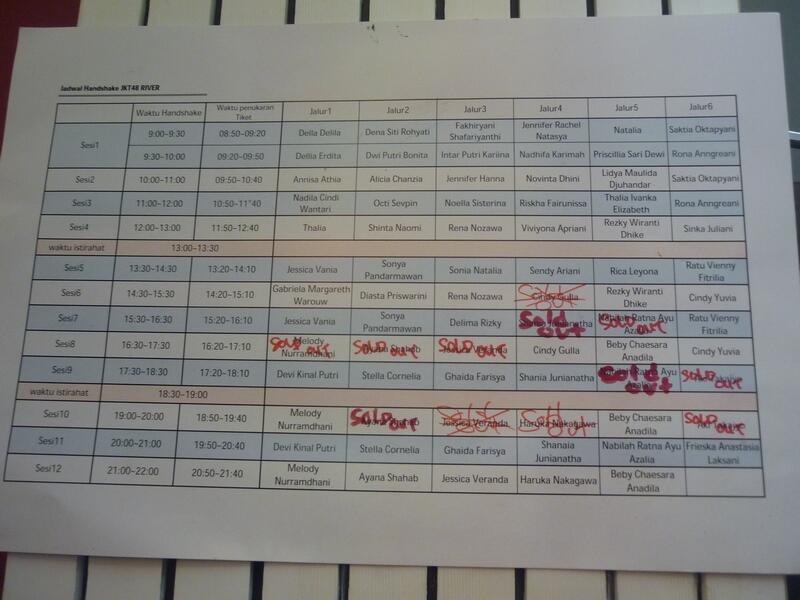 Jadwal Handshake JKT48 RIVER
Waktu Handshake Waktu penukaran Tiket Jalur1 Jalur2 Jalur3 Jalur4 Jalur5 Jalur6
Sesi1 9:00-9:30 08:50-09:20 Della Delila Dena Siti Rohyati Fakhiryani Shafariyanthi Jennifer Rachel Natasya Natalia Saktia Oktapyani
9:30-10:00 09:20-09:50 Dellia Erdita Dwi Putri Bonita Intar Putri Kariina Nadhifa Karimah Priscillia Sari Dewi Rona Anngreani
Sesi2 10:00-11:00 09:50-10:40 Annisa Athia Alicia Chanzia Jennifer Hanna Novinta Dhini Lidya Maulida Djuhandar Saktia Oktapyani
Sesi3 11:00-12:00 10:50-11"40 Nadila Cindi Wantari Octi Sevpin Noella Sisterina Riskha Fairunissa Thalia Ivanka Elizabeth Rona Anngreani
Sesi4 12:00-13:00 11:50-12:40 Thalia Shinta Naomi Rena Nozawa Viviyona Apriani Rezky Wiranti Dhike Sinka Juliani
waktu istirahat 13:00-13:30
Sesi5 13:30-14:30 13:20-14:10 Jessica Vania Sonya Pandarmawan Sonia Natalia Sendy Ariani Rica Leyona Ratu Vienny Fitrilia
Sesi6 14:30-15:30 14:20-15:10 Gabriela Margareth Warouw Diasta Priswarini Rena Nozawa Cindy Gulla Sold out Rezky Wiranti Dhike Cindy Yuvia
Sesi7 15:30-16:30 15:20-16:10 Jessica Vania Sonya Pandarmawan Delima Rizky Junianatha Sold out Nabilah Ratna Ayu SOLD out Ratu Vienny Fitrilia
Sesi8 16:30-17:30 16:20-17:10 Melody Nurramdhani SOLD out SOLD out SOLD out Cindy Gulla Beby Chaesara Anadila Cindy Yuvia
Sesi9 17:30-18:30 17:20-18:10 Devi Kinal Putri Stella Cornelia Ghaida Farisya Shania Junianatha Nabilah Ratna Ayu Sold out SOLD out
waktu istirahat 18:30-19:00
Sesi10 19:00-20:00 18:50-19:40 Melody Nurramdhani SOLD out Jessica Veranda Sold out Haruka Nakagawa Sold out Beby Chaesara Anadila SOLD out
Sesi11 20:00-21:00 19:50-20:40 Devi Kinal Putri Stella Cornelia Ghaida Farisya Shanaia Junianatha Nabilah Ratna Ayu Azalia Frieska Anastasia Laksani
Sesi12 21:00-22:00 20:50-21:40 Melody Nurramdhani Ayana Shahab Jessica Veranda Haruka Nakagawa Beby Chaesara Anadila